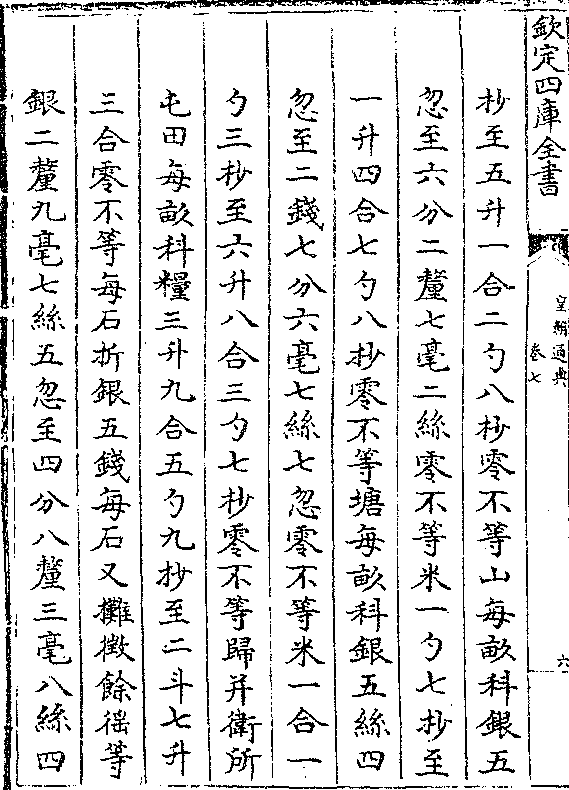 欽定四庫全書
皇朝通典
卷七
六
抄至五升一合二勺八抄零不等山每畝科銀五
忽至六分二釐七毫二絲零不等米一勺七抄至
一升四合七勺八抄零不等塘每畝科銀五絲四
忽至二錢七分六毫七絲七忽零不等米一合一
勺三抄至六升八合三勺七抄零不等歸并衛所
屯田每畝科糧三升九合五勺九抄至二斗七升
三合零不等每石折銀五錢每石又攤徵餘徭等
銀二釐九毫七絲五忽至四分八釐三毫八絲四